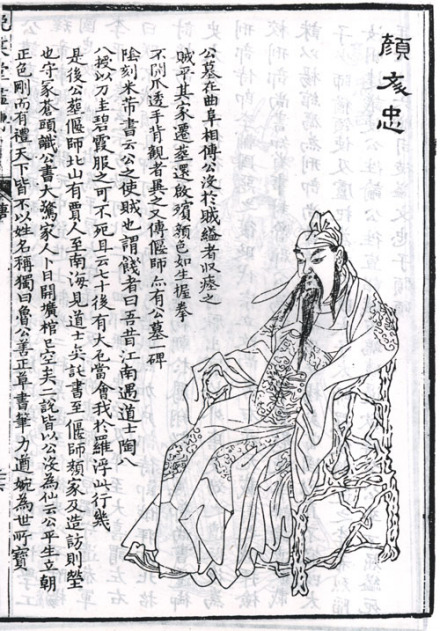 顏文忠
公墓在曲阜相傳公沒於賊縊者收瘞之
賊平其家遷葬還啟殯顏色如生握拳
不開爪透手背觀者異之又傳偃師亦有公墓一碑
陰刻米芾書云公之使賊也謂餞者曰吾昔江南遇道士陶八
八授以刀圭碧霞服之可不死且云七十後有大厄當會我於羅浮此行幾
是後公葬偃師北山有賈人至南海見道士奕託書至偃師顏家及造訪則塋
也守冢蒼頭識公書大驚家人卜日開壙棺已空矣一說皆以公沒為仙云公平生立朝
正色剛而有禮天下皆不以姓名稱獨曰魯公善正草書筆力遒婉為世所寶